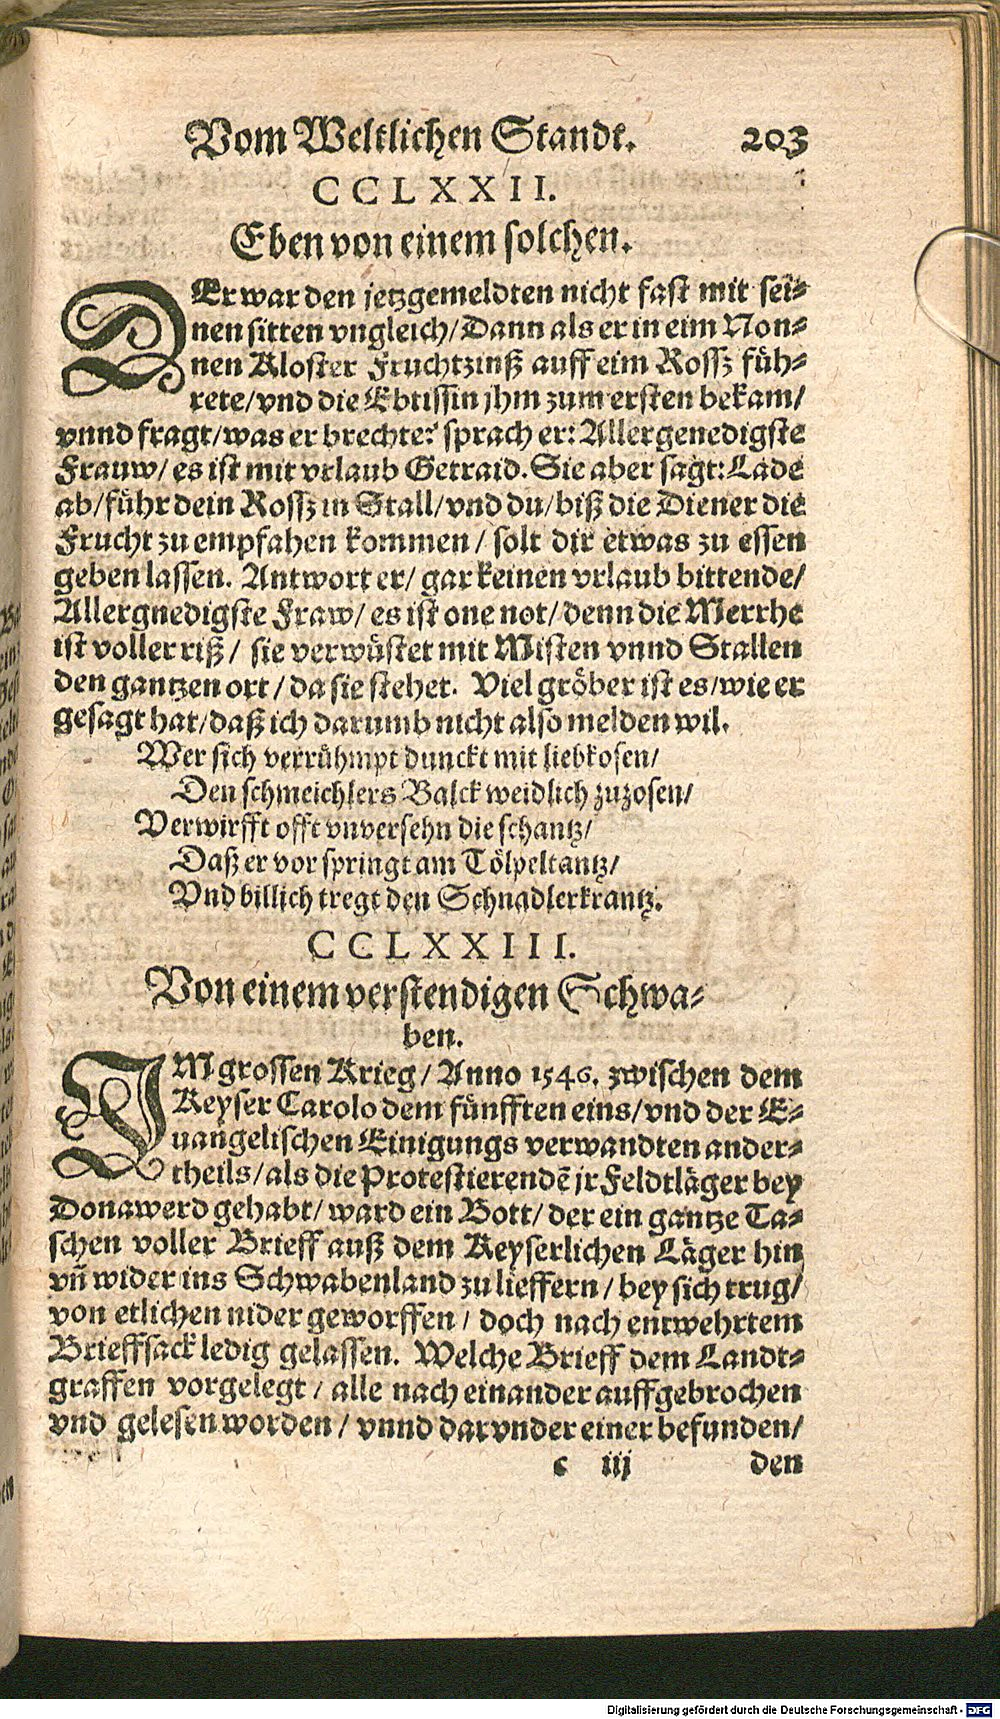 Vom Weltlichen Standt. 203
CCLXXII.
Eben von einem solchen.
DEr war den jetzgemeldten nicht fast mit sei⸗
nen sitten vngleich/ Dann als er in eim Non⸗
nen Kloster Fruchtzinß auff eim Rossz füh⸗
rete/ vnd die Ebtissin jhm zum ersten bekam/
vnnd fragt/ was er brechte? sprach er: Allergenedigste
Frauw/ es ist mit vrlaub Getraid. Sie aber sagt: Lade
ab/ führ dein Rossz in Stall/ vnd du/ biß die Diener die
Frucht zu empfahen kommen/ solt dir etwas zu essen
geben lassen. Antwort er/ gar keinen vrlaub bittende/
Allergnedigste Fraw/ es ist one not/ denn die Merrhe
ist voller riß/ sie verwüstet mit Misten vnnd Stallen
den gantzen ort/ da sie stehet. Viel gröber ist es/ wie er
gesagt hat/ daß ich darumb nicht also melden wil.
Wer sich verrühmpt dunckt mit liebkosen/
Den schmeichlers Balck weidlich zuzosen/
Verwirfft offt vnversehn die schantz/
Daß er vor springt am Tölpeltantz/
Vnd billich tregt den Schnadlerkrantz.
CCLXXIII.
Von einem verstendigen Schwa⸗
ben.
IM grossen Krieg/ Anno 1546. zwischen dem
Keyser Carolo dem fünfften eins/ vnd der E⸗
uangelischen Einigungs verwandten ander⸗
theils/ als die Protestierendẽ jr Feldtläger bey
Donawerd gehabt/ ward ein Bott/ der ein gantze Ta⸗
schen voller Brieff auß dem Keyserlichen Läger hin
vñ wider ins Schwabenland zu lieffern/ bey sich trug/
von etlichen nider geworffen/ doch nach entwehrtem
Brieffsack ledig gelassen. Welche Brieff dem Landt⸗
graffen vorgelegt/ alle nach einander auffgebrochen
vnd gelesen worden/ vnnd darvnder einer befunden/
c iij den
Digitalisierung gefördert durch die Deutsche Forschungsgemeinschaft - DFG